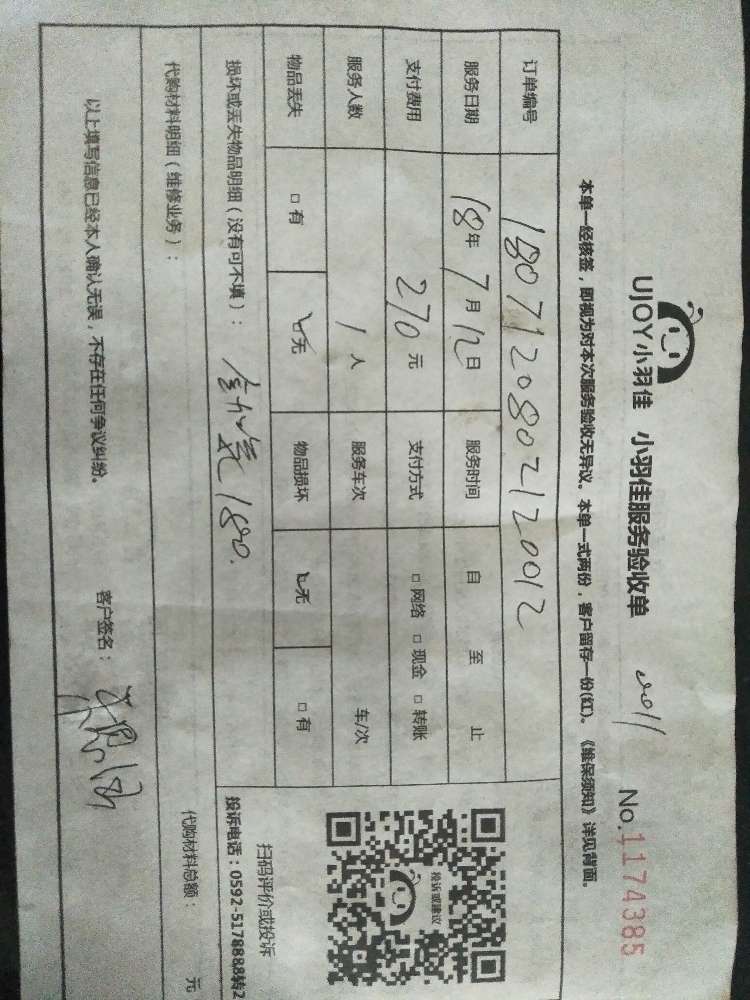 UJOY小羽佳 小羽佳服务验收单
No.1174385
本单一经核签，即视为对本次服务验收无异议。本单一式两份，客户留存一份(红)。《维保须知》详见背面。
订单编号 1807120802120012
服务日期 18年7月12日 服务时间 自 至 止
支付费用 270元 支付方式 □网络 □现金 □转账
服务人数 1人 服务车次 车/次
物品丢失 □有 □无 物品损坏 □无 □有
损坏或丢失物品明细（没有可不填）： 180.
代购材料明细（维修业务）：
代购材料总额： 元
以上填写信息已经本人确认无误，不存在任何争议纠纷。 客户签名：
投诉或建议
扫码评价或投诉
投诉电话：0592-5178888转2